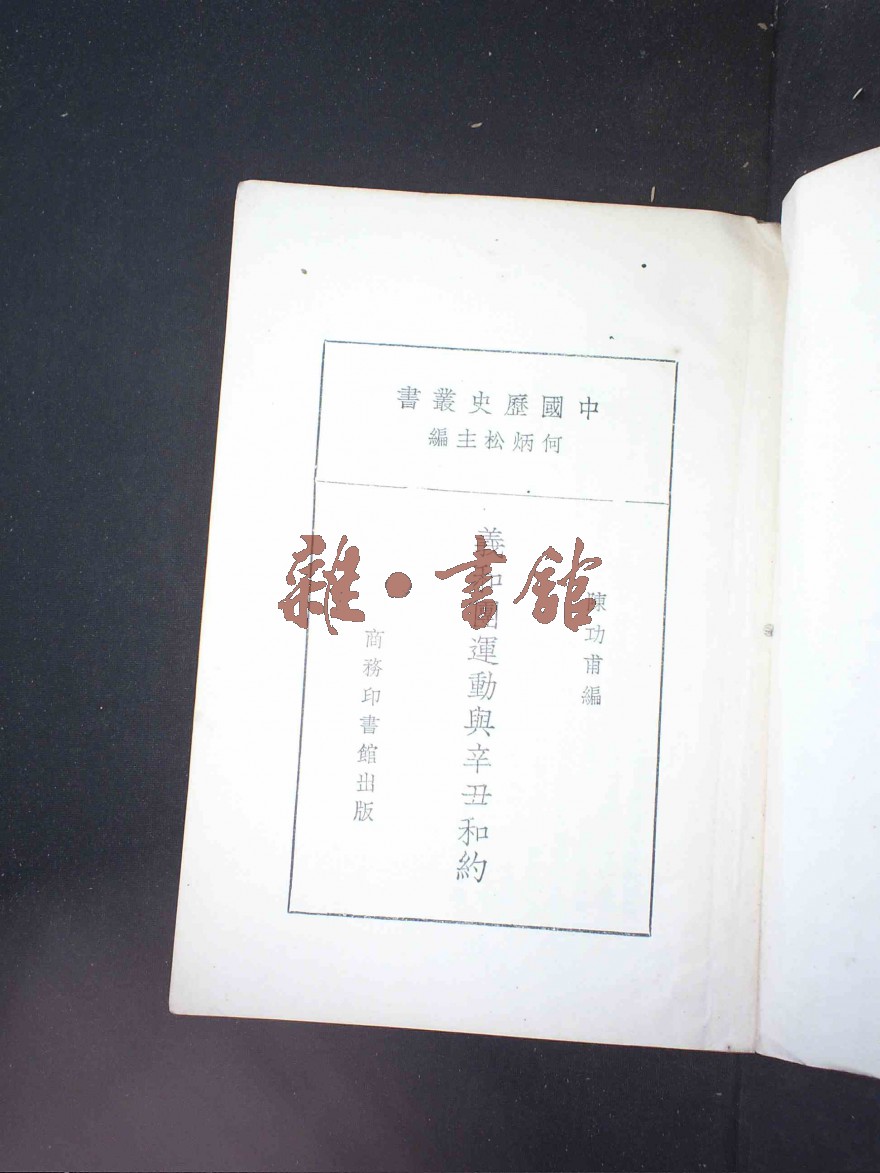 中國歷史叢書
何炳松主編
陳功甫編
義和團運動與辛丑和約
商務印書館出版
雜·書館